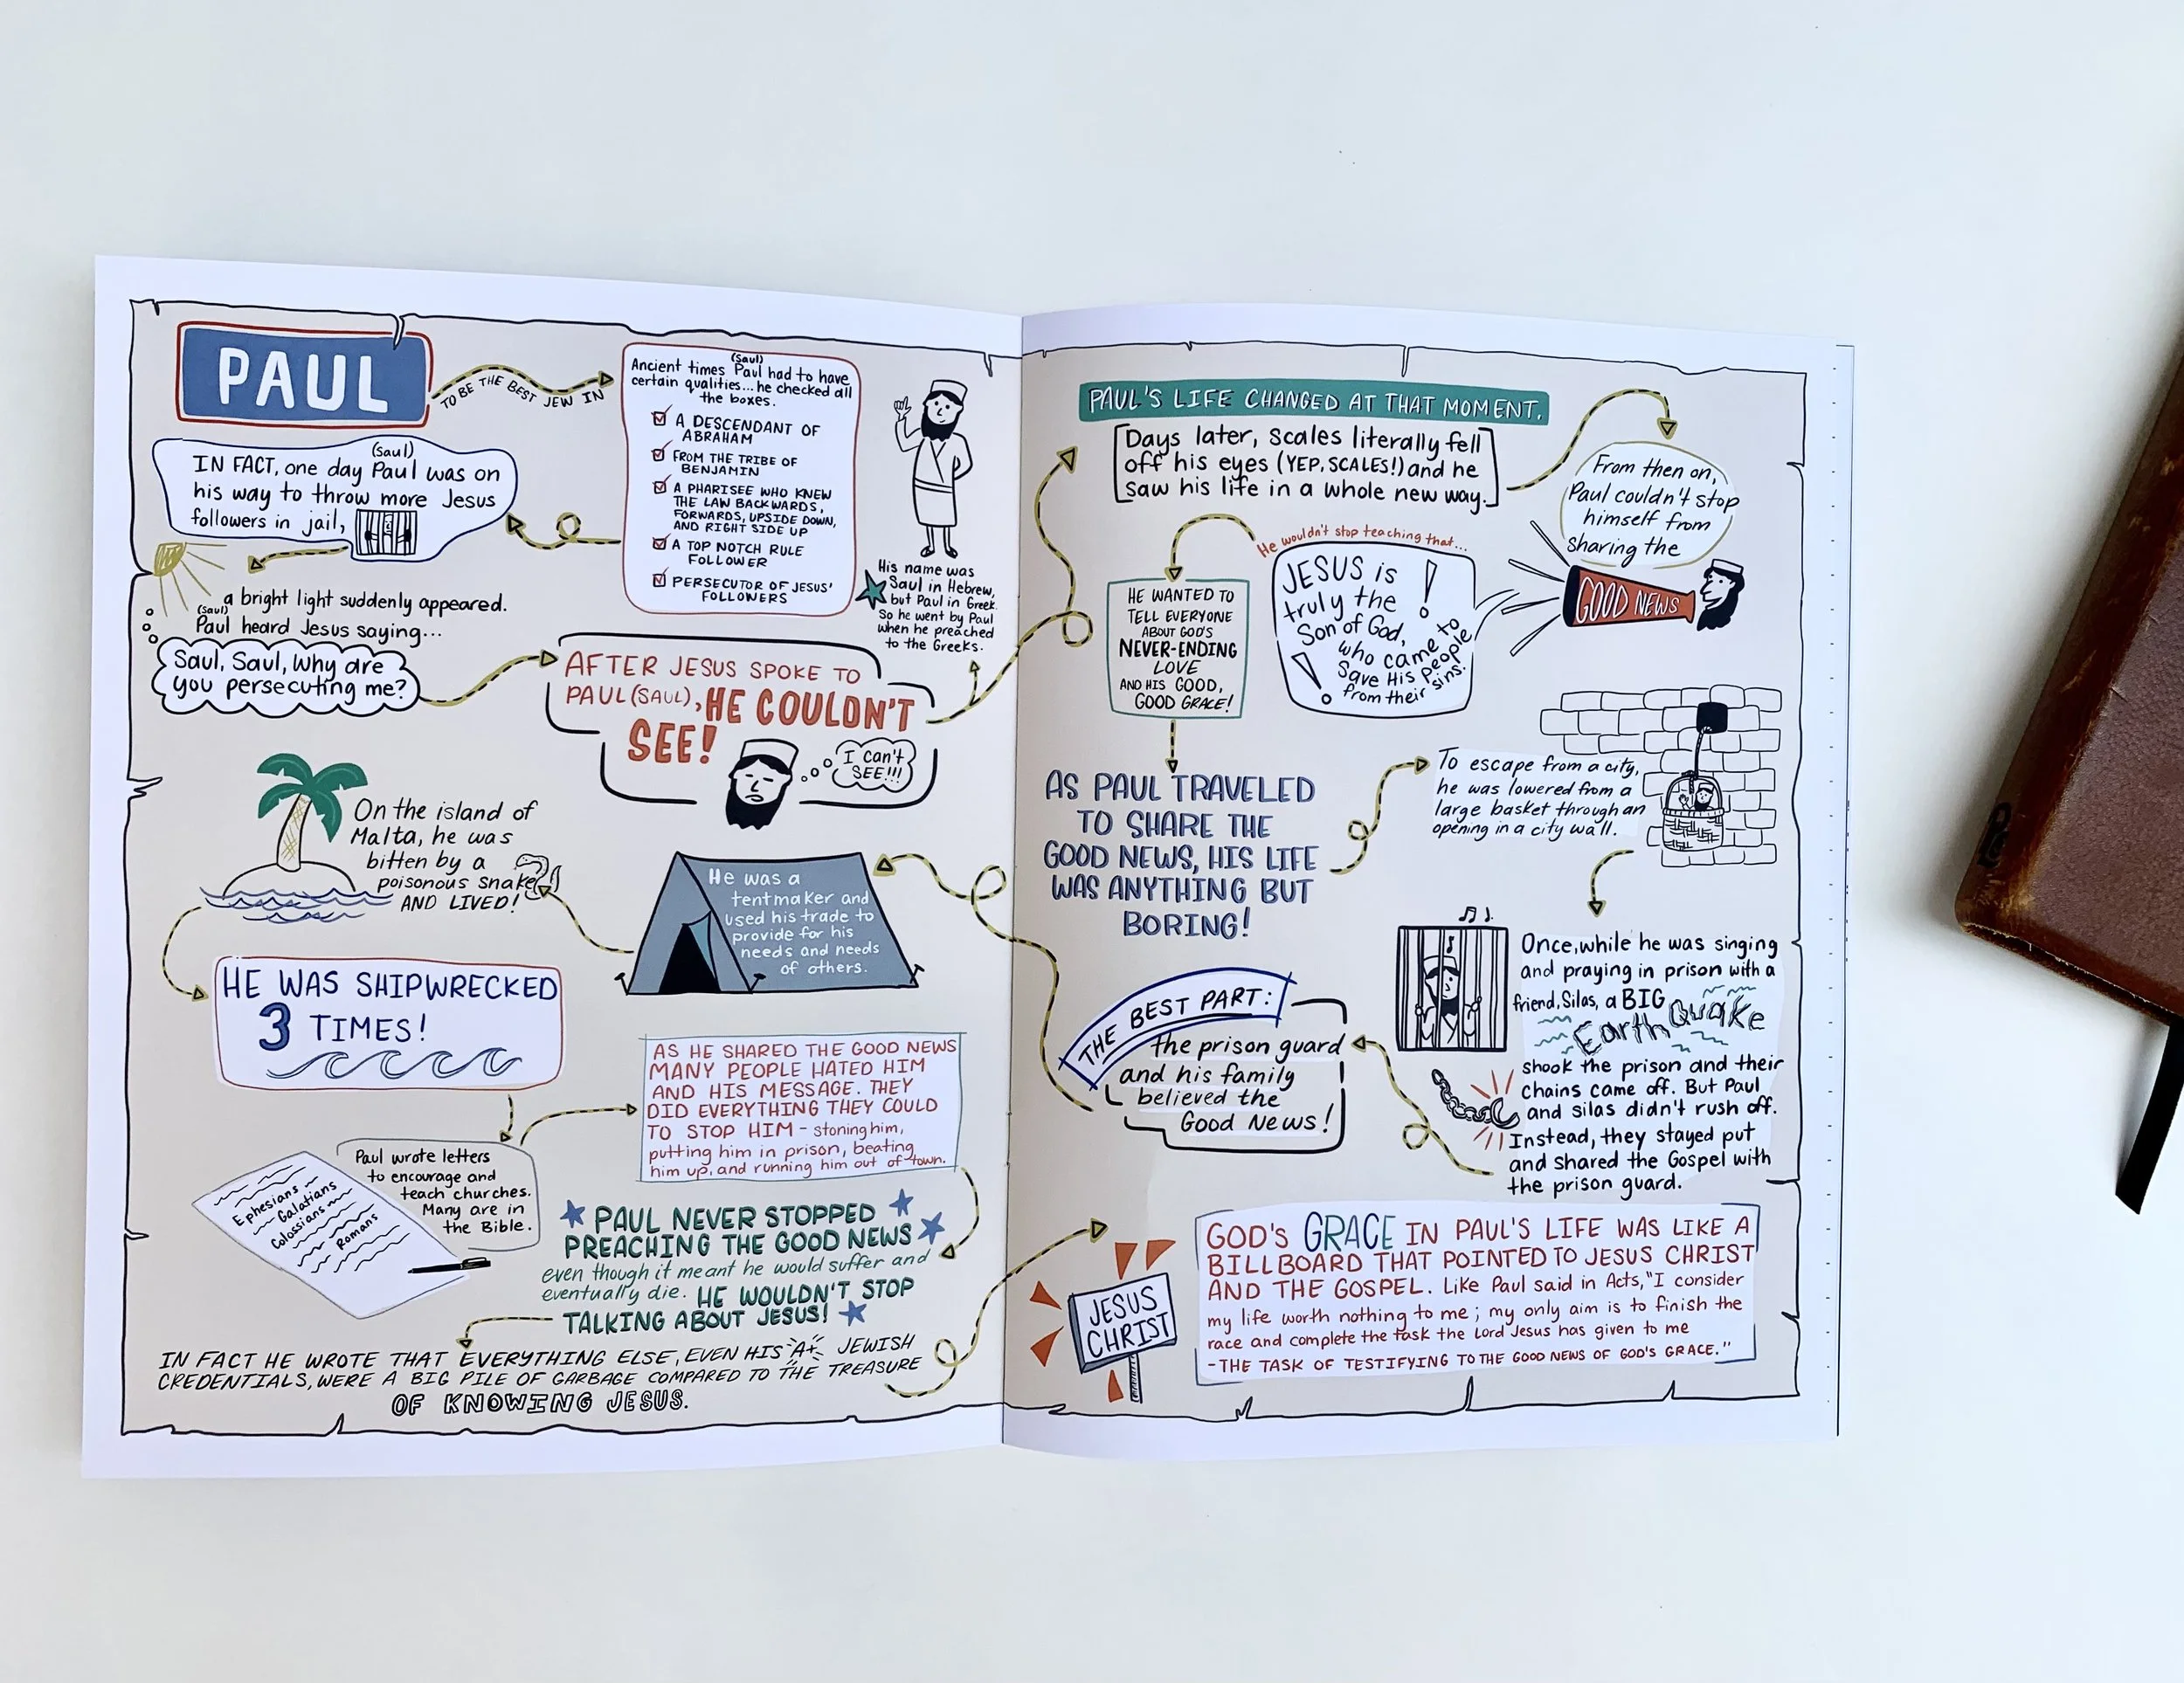 PAUL
TO BE THE BEST JEW IN
(Saul)
Ancient times Paul had to have
certain qualities... he checked all
the boxes.
A DESCENDANT OF
ABRAHAM
FROM THE TRIBE OF
BENJAMIN
A PHARISEE WHO KNEW
THE LAW BACKWARDS,
FORWARDS, UPSIDE DOWN,
AND RIGHT SIDE UP
A TOP NOTCH RULE
FOLLOWER
PERSECUTOR OF JESUS'
FOLLOWERS
His name was
Saul in Hebrew,
but Paul in Greek.
So he went by Paul
when he preached
to the Greeks.
(saul)
IN FACT, one day Paul was on
his way to throw more Jesus
followers in jail,
a bright light suddenly appeared.
(saul)
Paul heard Jesus saying...
Saul, Saul, why are
you persecuting me?
AFTER JESUS SPOKE TO
PAUL (SAUL), HE COULDN'T
SEE!
I can't
SEE!!!
PAUL'S LIFE CHANGED AT THAT MOMENT.
Days later, scales literally fell
off his eyes (YEP, SCALES!) and he
saw his life in a whole new way.
From then on,
Paul couldn't stop
himself from
sharing the
GOOD NEWS
He wouldn't stop teaching that...
JESUS is
truly the
Son of God,
who came to
Save His people
from their sins!
HE WANTED TO
TELL EVERYONE
ABOUT GOD'S
NEVER-ENDING
LOVE
AND HIS GOOD,
GOOD GRACE!
AS PAUL TRAVELED
TO SHARE THE
GOOD NEWS, HIS LIFE
WAS ANYTHING BUT
BORING!
To escape from a city,
he was lowered from a
large basket through an
opening in a city wall.
Once, while he was singing
and praying in prison with a
friend, Silas, a BIG
EarthQuake
shook the prison and their
chains came off. But Paul
and silas didn't rush off.
Instead, they stayed put
and shared the Gospel with
the prison guard.
THE BEST PART:
the prison guard
and his family
believed the
Good News!
He was a
tentmaker and
used his trade to
provide for his
needs and needs
of others.
On the island of
Malta, he was
bitten by a
poisonous snake
AND LIVED!
HE WAS SHIPWRECKED
3 TIMES!
Paul wrote letters
to encourage and
teach churches.
Many are in
the Bible.
Ephesians
Galatians
Colossians
Romans
AS HE SHARED THE GOOD NEWS
MANY PEOPLE HATED HIM
AND HIS MESSAGE. THEY
DID EVERYTHING THEY COULD
TO STOP HIM - stoning him,
putting him in prison, beating
him up, and running him out of town.
PAUL NEVER STOPPED
PREACHING THE GOOD NEWS
even though it meant he would suffer and
eventually die. HE WOULDN'T STOP
TALKING ABOUT JESUS!
IN FACT HE WROTE THAT EVERYTHING ELSE, EVEN HIS A+ JEWISH
CREDENTIALS, WERE A BIG PILE OF GARBAGE COMPARED TO THE TREASURE
OF KNOWING JESUS.
JESUS
CHRIST
GOD'S GRACE IN PAUL'S LIFE WAS LIKE A
BILLBOARD THAT POINTED TO JESUS CHRIST
AND THE GOSPEL. Like Paul said in Acts, "I consider
my life worth nothing to me; my only aim is to finish the
race and complete the task the Lord Jesus has given to me
-THE TASK OF TESTIFYING TO THE GOOD NEWS OF GOD'S GRACE."